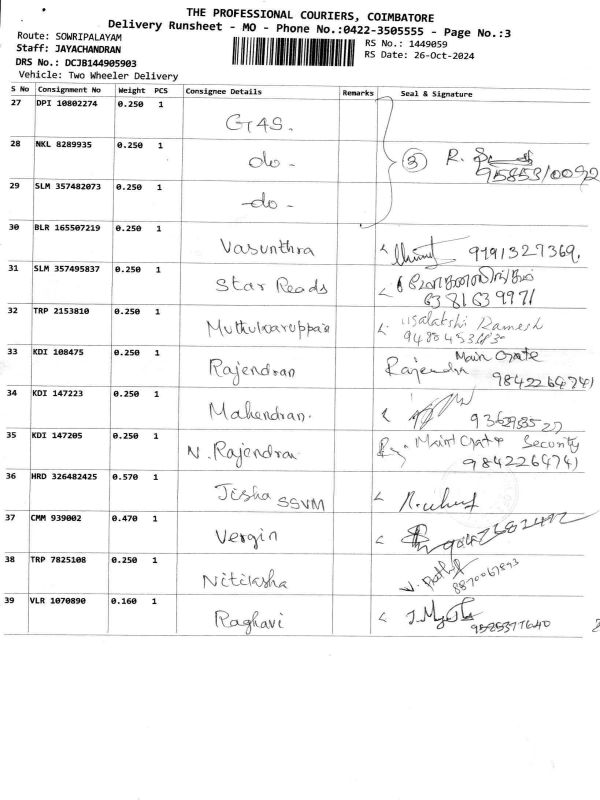 THE PROFESSIONAL COURIERS, COIMBATORE
Delivery Runsheet - MO - Phone No.:0422-3505555 - Page No.:3
Route: SOWRIPALAYAM
RS No.: 1449059
Staff: JAYACHANDRAN
RS Date: 26-Oct-2024
DRS No.: DCJB144905903
Vehicle: Two Wheeler Delivery
S No Consignment No Weight PCS Consignee Details Remarks Seal & Signature
27 DPI 10802274 0.250 1 G4S.
28 NKL 8289935 0.250 1 do - 3 R.
9585310092
29 SLM 357482073 0.250 1 -do -
30 BLR 165507219 0.250 1 Vasunthra 9791327369.
31 SLM 357495837 0.250 1 Star Reads
6381639971
32 TRP 2153810 0.250 1 Ramesh
33 KDI 108475 0.250 1 Rajendran Rajendra Main Gate
9842264741
34 KDI 147223 0.250 1 Mahendran.
35 KDI 147205 0.250 1 N. Rajendran Main Gate Security
9842264741
36 HRD 326482425 0.570 1 Jisha SSVM
37 CMM 939002 0.470 1 Vergin
38 TRP 7825108 0.250 1 Nitiksha
8870067893
39 VLR 1070890 0.160 1 Raghavi